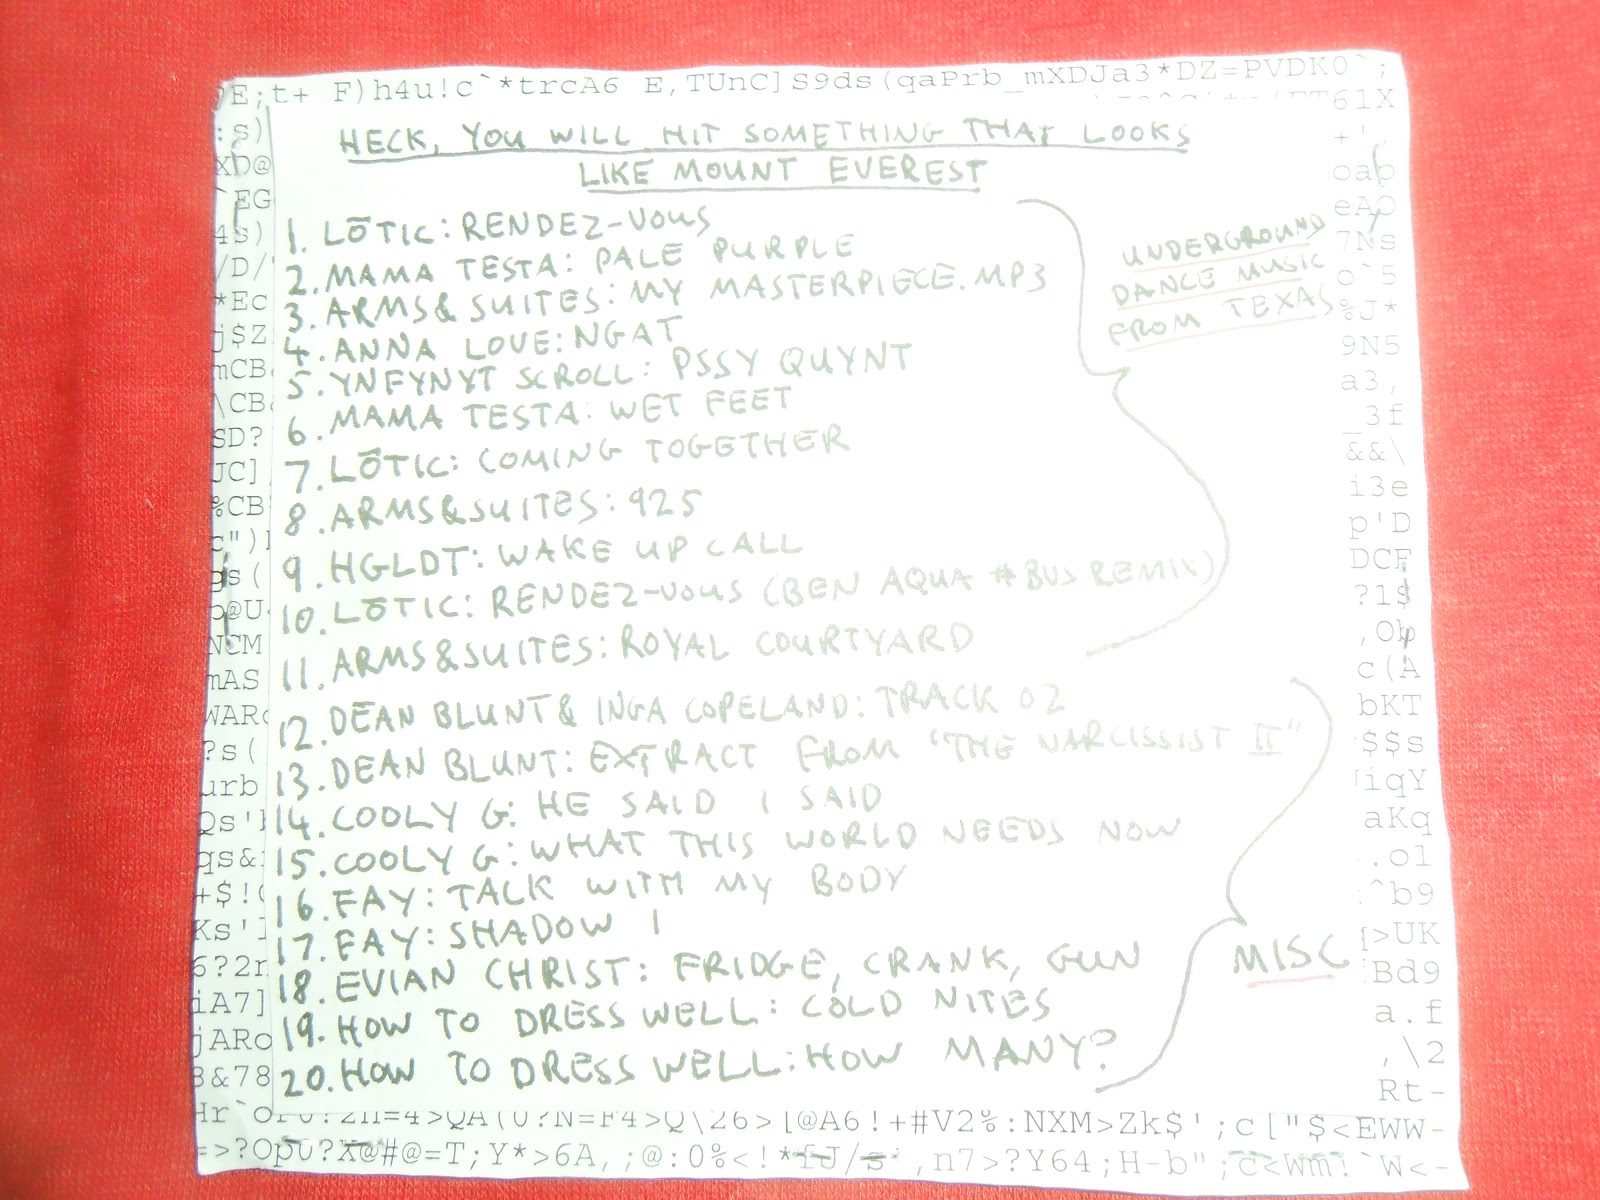 E;t+ F)h4u!c`*trcA6 E,TUnC]S9ds(qaPrb_mXDJa3*DZ=PVDK0`;
HECK, YOU WILL HIT SOMETHING THAT LOOKS
LIKE MOUNT EVEREST
1. LŌTIC: RENDEZ-VOUS
2. MAMA TESTA: PALE PURPLE
3. ARMS&SUITES: MY MASTERPIECE.MP3
4. ANNA LOVE: NGAT
5. YNFYNYT SCROLL: PSSY QUYNT
6. MAMA TESTA: WET FEET
7. LŌTIC: COMING TOGETHER
8. ARMS&SUITES: 925
9. HGLDT: WAKE UP CALL
10. LŌTIC: RENDEZ-VOUS (BEN AQUA #BUS REMIX)
11. ARMS&SUITES: ROYAL COURTYARD
UNDERGROUND
DANCE MUSIC
FROM TEXAS
12. DEAN BLUNT & INGA COPELAND: TRACK 02
13. DEAN BLUNT: EXTRACT FROM "THE NARCISSIST II"
14. COOLY G: HE SAID I SAID
15. COOLY G: WHAT THIS WORLD NEEDS NOW
16. FAY: TALK WITH MY BODY
17. FAY: SHADOW 1
18. EVIAN CHRIST: FRIDGE, CRANK, GUN
19. HOW TO DRESS WELL: COLD NITES
20. HOW TO DRESS WELL: HOW MANY?
MISC
:s)
XD@
`EG
4s)
/D/
*Ec
j$Z
mCB
\CB
SD?
JC]
%CB
c")
gs(
@U
NCM
mAS
WAR
?s(
urb
Qs'
qs&
+$!
Ks']
6?2r
iA7]
jARo
8&78
61X
+'
oab
eAO
7Ns
o`5
%J*
9N5
a3,
_3f
&&\
i3e
p'D
DCF
?1$
,Ob
c(A
bKT
$$s
iqY
aKq
.ol
^b9
>UK
Bd9
a.f
,\2
Rt-
=4>QA(0?N=F4>Q\26>[@A6!+#V2%:NXM>Zk$';c["$<EWW-
=>?Op0?X@#@=T;Y*>6A,;@:0%<!*fJ/s',n7>?Y64;H-b";c<Wm!`W<-